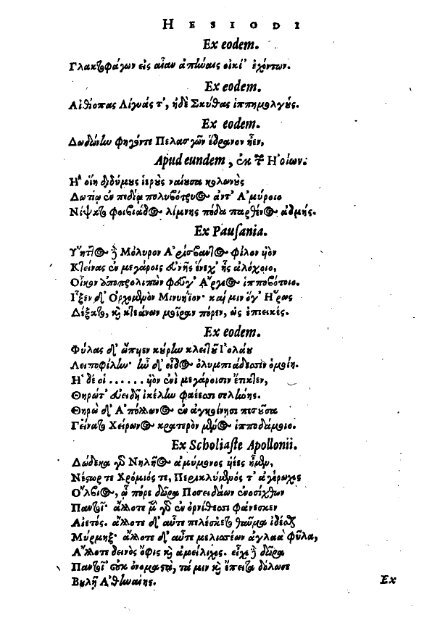 HESIODI
Ex eodem.
Γλακτοφάγων εἰς αἶαν ἀπήναις οἰκί' ἐχόντων.
Ex eodem.
Αἰθίοπας Λίγυάς τ', ἠδὲ Σκύθας ἱππημολγούς.
Ex eodem.
Δωδώνην φηγόν τε Πελασγῶν ἕδρανον ἧεν,
Apud eundem, ἐκ τῶν Ἠοίων.
Ἢ οἵη διδύμους ἱεροὺς ναίουσα κολωνοὺς
Δωτίῳ ἐν πεδίῳ πολυβότρυος ἀντ' Ἀμύροιο
Νίψατο φοιβιάδος λίμνης πόδα παρθένος ἀδμής.
Ex Pausania.
Ὕηττος δὲ Μόλυρον Ἀρίσβαντος φίλον υἱὸν
Κτείνας ἐν μεγάροις εὐνῆς ἕνεχ' ἧς ἀλόχοιο,
Οἶκον ἀποπρολιπὼν φεῦγ' Ἄργεος ἱπποβότοιο.
Ἷξεν δ' Ὀρχομενὸν Μινυήϊον· καί μιν ὅγ' Ἥρως
Δέξατο, καὶ κτεάνων μοῖραν πόρεν, ὡς ἐπιεικές.
Ex eodem.
Φύλας δ' ὤπυεν κούρην κλειτοῦ Ἰολάου
Λειποφίλην· ἣν δ' εἶδος ὀλυμπιάδεσσιν ὁμοίη.
Ἡ δέ οἱ ...... υἱὸν ἐνὶ μεγάροισιν ἔτικτεν,
Θηρώτ' εὐειδῆ ἰκέλην φαέεσσι σελήνης.
Θηρὼ δ' Ἀπόλλωνος ἐν ἀγκοίνῃσι πεσοῦσα
Γείνατο Χείρωνος κρατερὸν μένος ἱπποδάμοιο.
Ex Scholiaste Apollonii.
Δώδεκα γὰρ Νηλῆος ἀμύμονος υἱέες ἦμεν,
Νέστωρ τε Χρόμιός τε, Περικλύμενός τ' ἀγέρωχος
Ὄλβιος, ᾧ πόρε δῶρα Ποσειδάων ἐνοσίχθων
Παντοῖ'. ἄλλοτε μὲν γὰρ ἐν ὀρνίθεσσι φάνεσκεν
Αἰετός. ἄλλοτε δ' αὖτε πελέσκετο θαῦμα ἰδέσθαι
Μύρμηξ· ἄλλοτε δ' αὖτε μελισσέων ἀγλαὰ φῦλα,
Ἄλλοτε δεινὸς ὄφις καὶ ἀμείλιχος. εἶχε δὲ δῶρα
Παντοῖ' οὐκ ὀνομαστὰ, τά μιν καὶ ἔπειτα δόλωσε
Βουλῇ Ἀθηναίης.
Ex